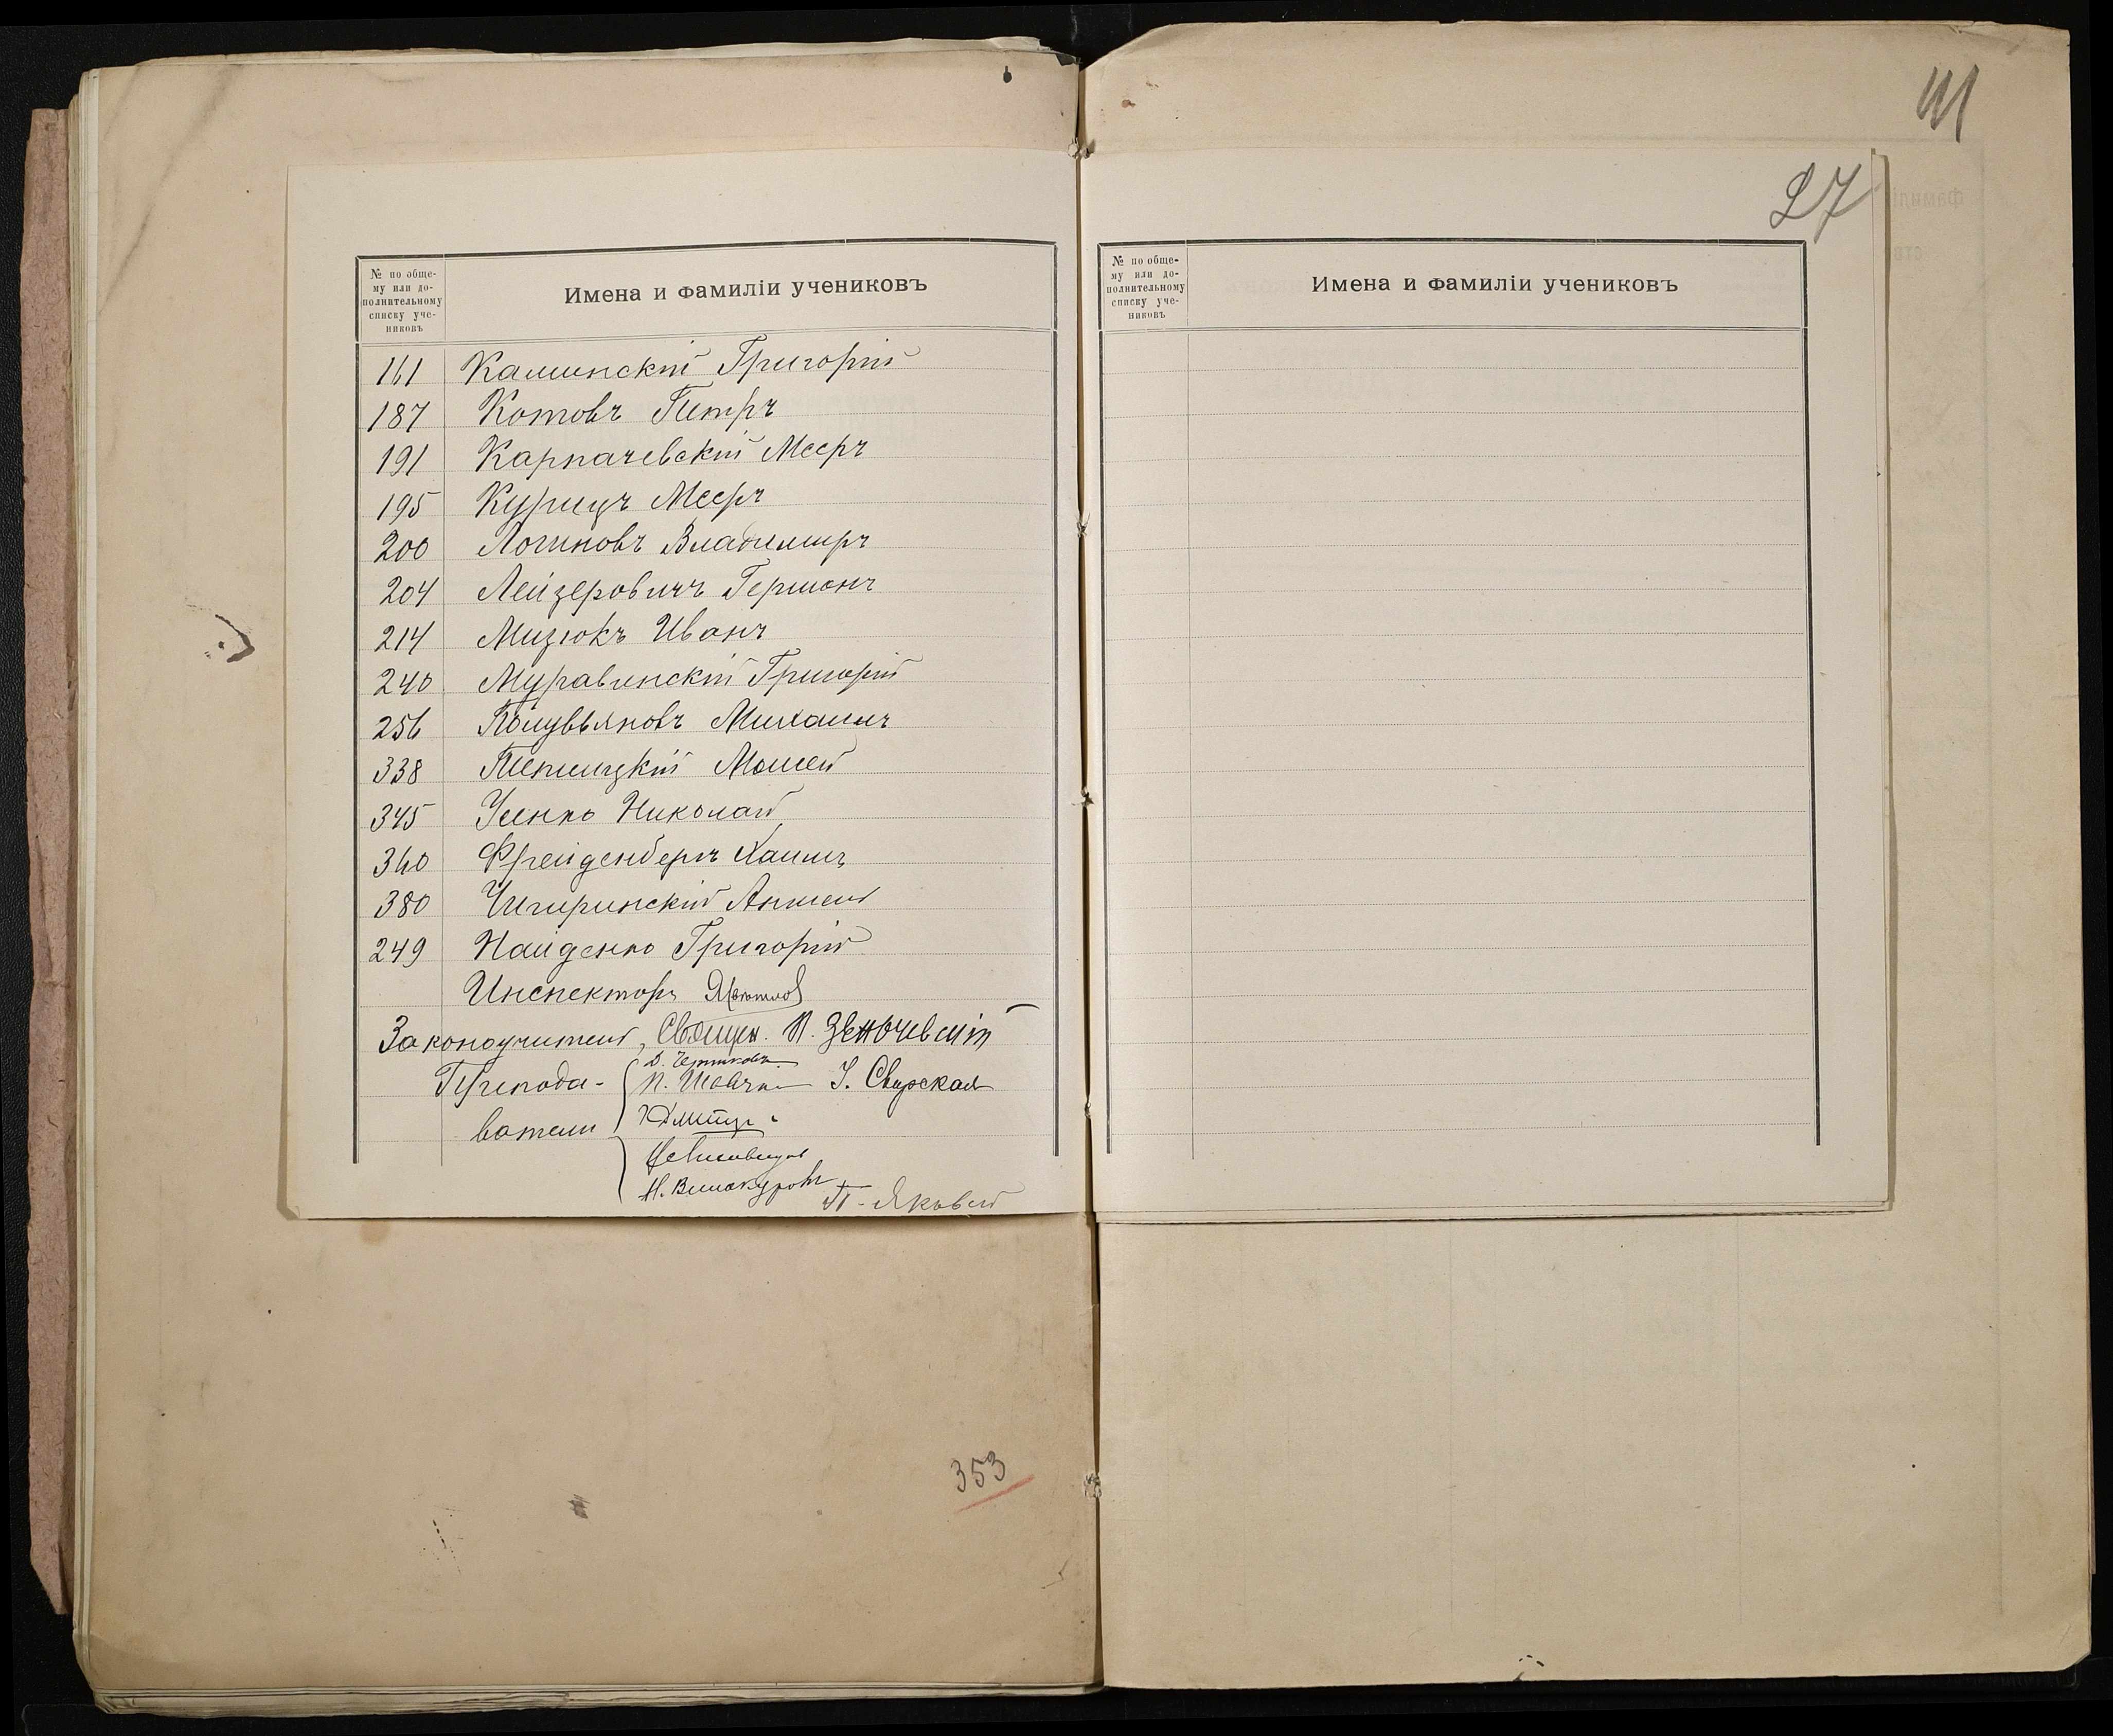 № по обще-
му или до-
полнительному
списку уче-
никовъ
Имена и фамиліи учениковъ
161 Каминскій Григорій
187 Котовъ Петръ
191 Карпачевскій Мееръ
195 Курицъ Мееръ
200 Логиновъ Владимиръ
204 Лейзеровичъ Германъ
214 Мизюкъ Иванъ
240 Муравинскій Григорій
256 Полувьяновъ Михаилъ
338 Мошей
345 Усенко Николай
360 Фрейденбергъ Хаимъ
380 Чигиринскій Аншель
249 Найденко Григорій
Инспекторъ
Законоучитель, Священ. П.
Д. Чертковъ
Препода- П. У. Свирская
ватели
Н. Винокуровъ
П. Яковлев
353
111
27
№ по обще-
му или до-
полнительному
списку уче-
никовъ
Имена и фамиліи учениковъ